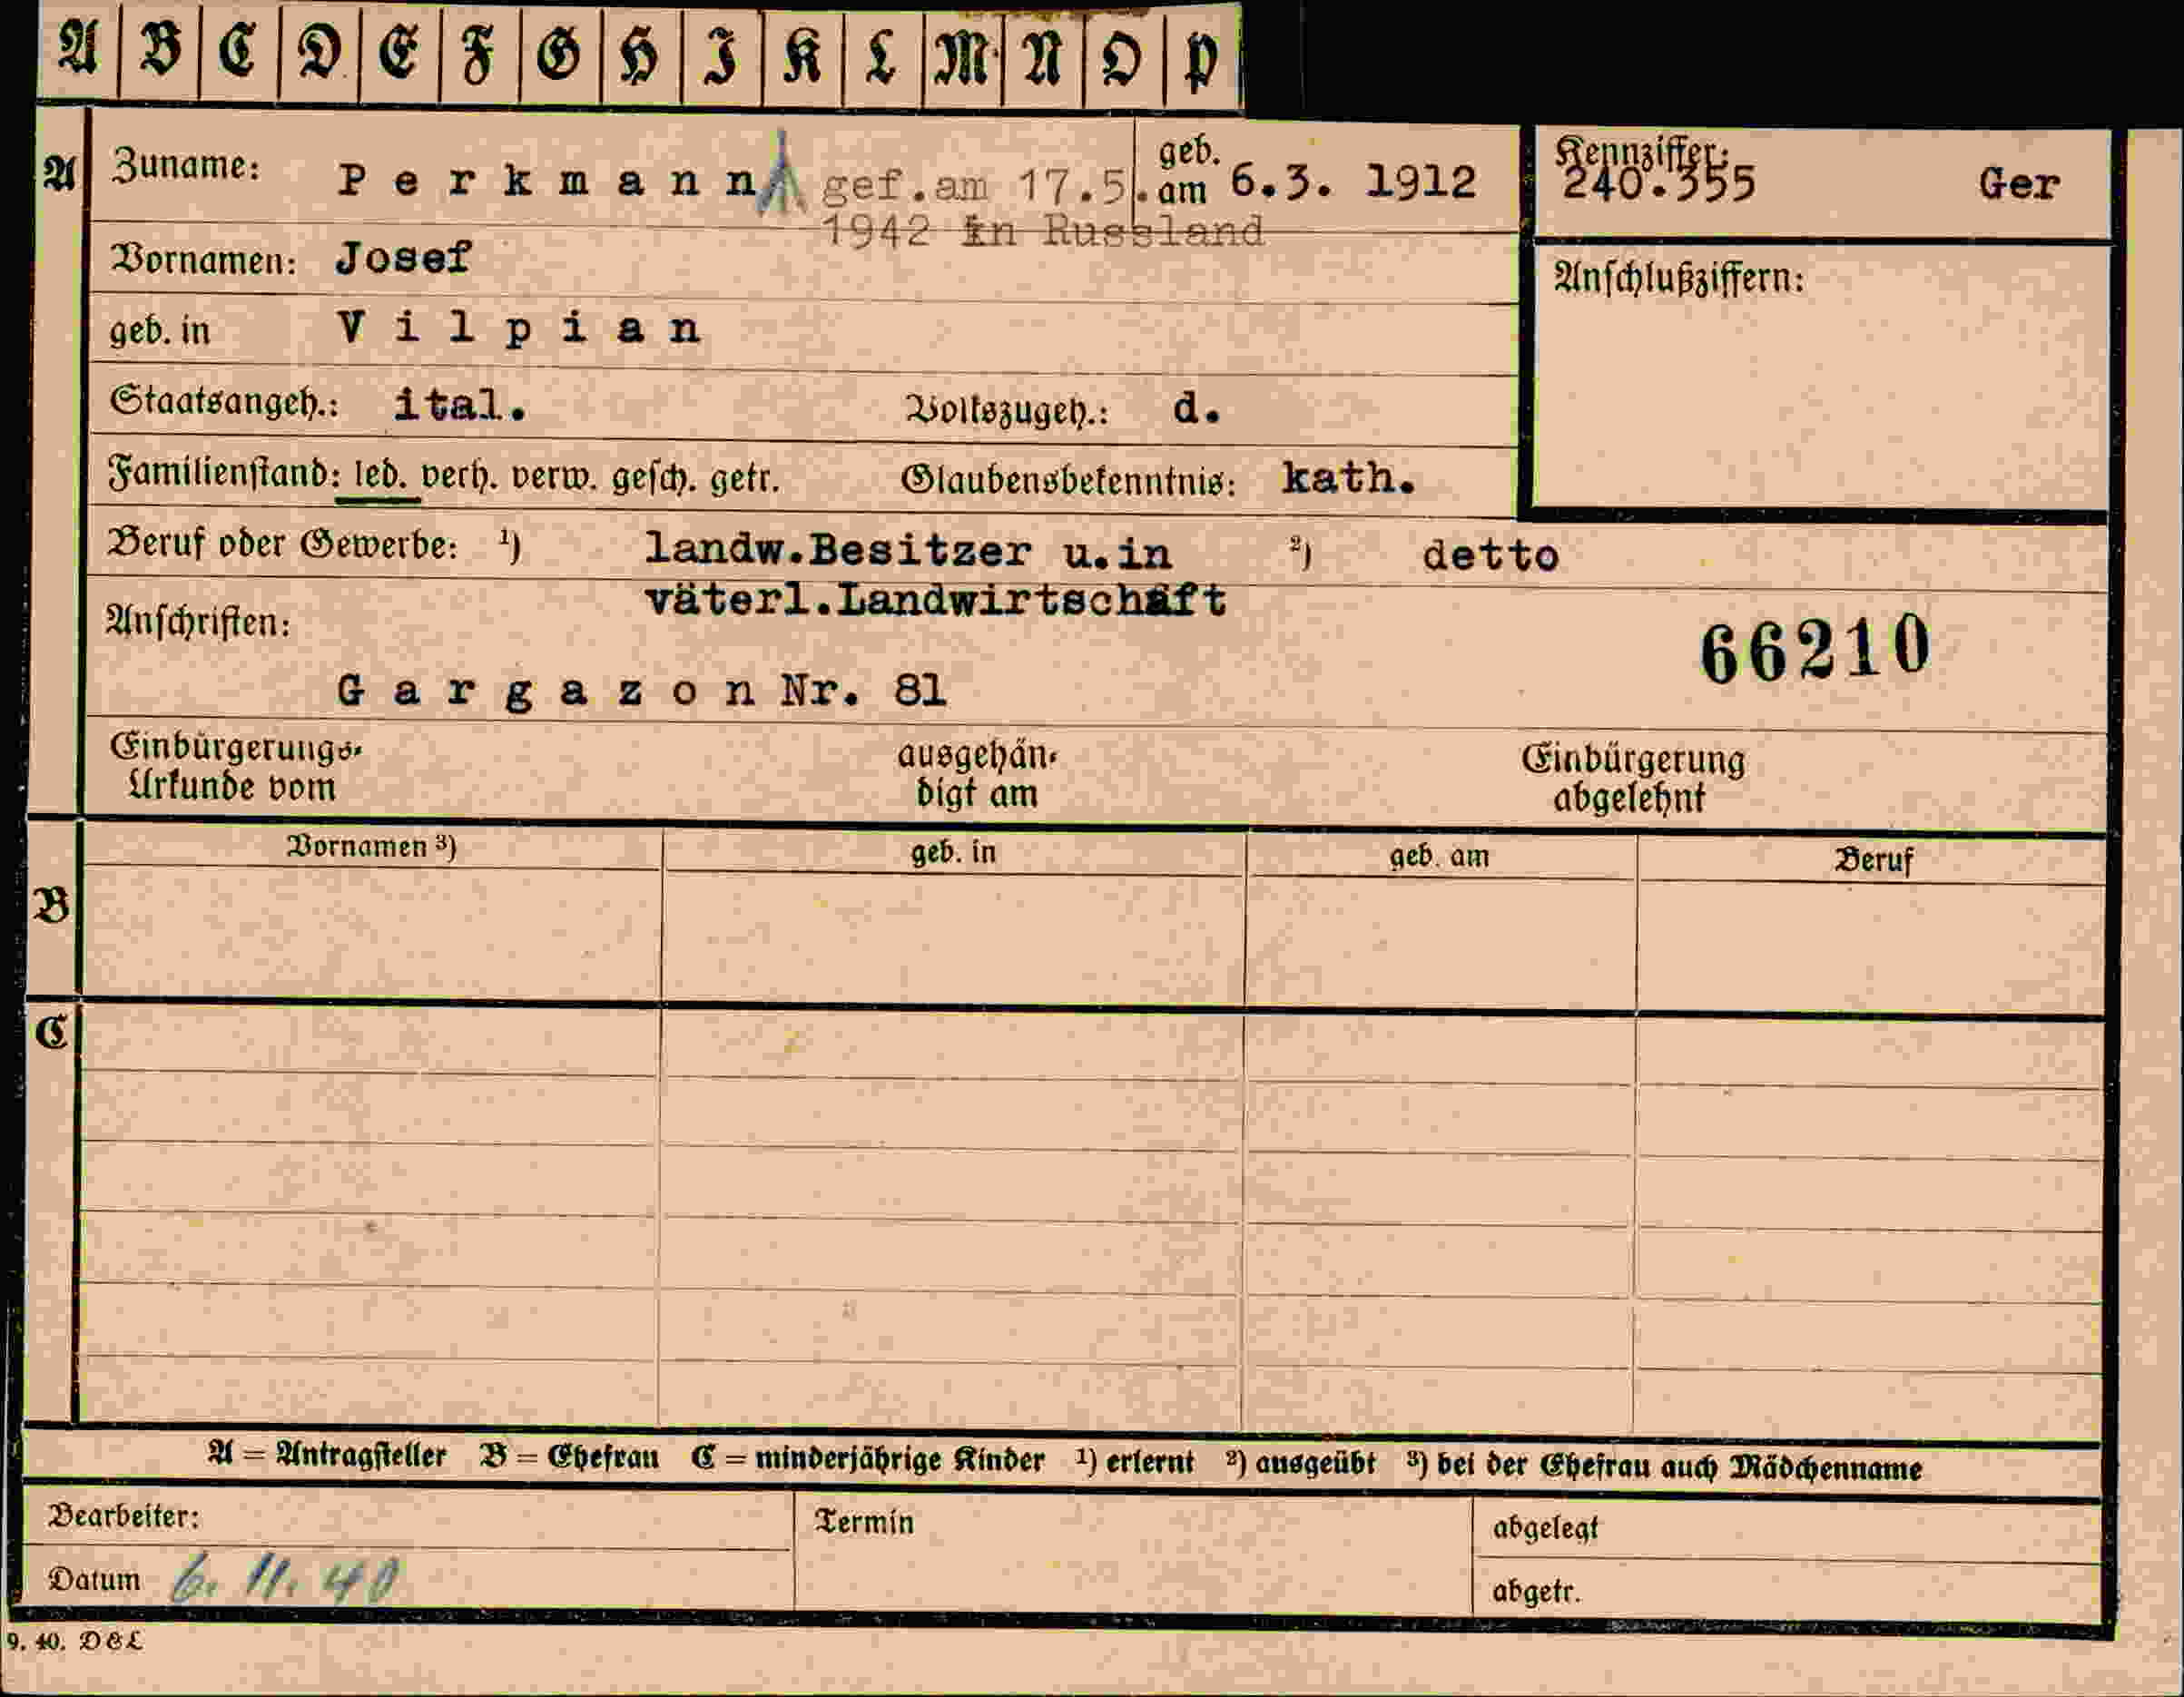 A B C D E F G H I K L M N O P
A Zuname: Perkmann gef.am 17.5. geb. am 6.3. 1912 Kennziffer: 240.355 Ger
1942 in Russland
Vornamen: Josef Anschlußziffern:
geb. in Vilpian
Staatsangeh.: ital. Volkszugeh.: d.
Familienstand: led. verh. verw. gesch. getr. Glaubensbekenntnis: kath.
Beruf oder Gewerbe: 1) landw.Besitzer u.in 2) detto
väterl.Landwirtschaft
Anschriften: 66210
Gargazon Nr. 81
Einbürgerungs- ausgehän- Einbürgerung
Urkunde vom digt am abgelehnt
Vornamen 3) geb. in geb. am Beruf
B
C
A = Antragsteller B = Ehefrau C = minderjährige Kinder 1) erlernt 2) ausgeübt 3) bei der Ehefrau auch Mädchenname
Bearbeiter: Termin abgelegt
Datum 6. 11. 40 abgetr.
9. 40. D&L